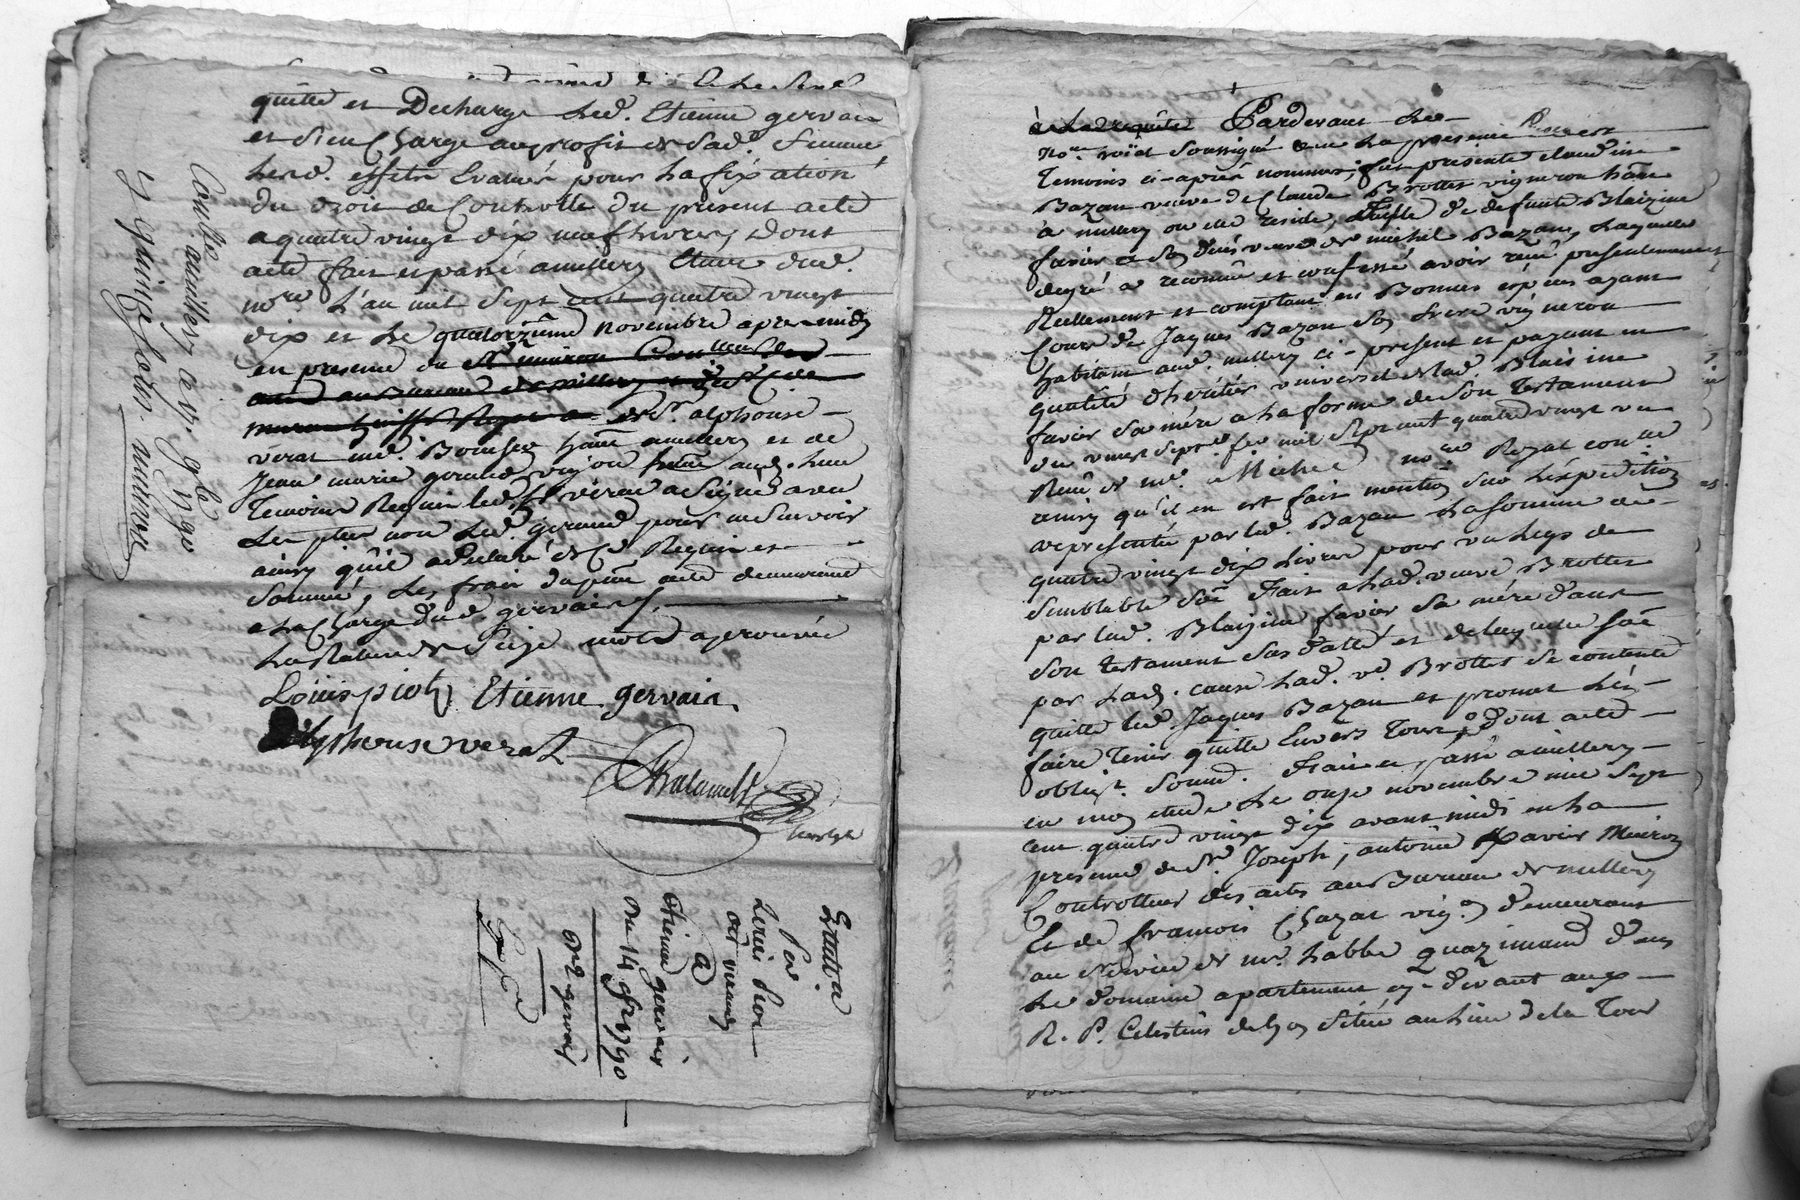 quitte et Decharge led. Etienne gervais
et d'en Charge au profit de Sad. femme
lesd. effets Evalués pour la fixation
du droit de Controlle du present acte
a quatre vingt dix neuf livres, Dont
acte fait et passé a millery Etude dud.
nore. L'an mil Sept cent quatre vingt
dix et le quatorziême novembre apres midy
en presence de
de Sr. alphonse
verat md. Boucher habt. a millery et de
Jean marie giraud vigon habt. aud. lieu
Temoins Requis led. Sr. verat a Signé avec
les pties non led. giraud pour ne Savoir
ainsy qu'il a declaré de ce Requis et
Sommé, les frais du pnt. acte demeurent
a la Charge dud. gervais.
La Rature de Seize mots aprouvée
Louis piot Etienne gervais
alphonse verat
Controllé a millery ce 15. 9bre 1790
R quinze sols muron
Louis Piot
a
Etienne gervais
Du 14 9bre 1790
Pardevant Le
nore. royal Soussigné en la presence
Temoins ci-après nommés, fut presente claudine
Bazan veuve de Claude Brottet vigneron habt.
a millery ou elle reside, fille de defunte Blaizine
favier a Son deces veuve de michel Bazan, laquelle
degré a reconnu et confessé avoir reçu presentement
Reellement et comptant en Bonnes espèces ayant
Cours de Jaques Bazan Son frere vigneron
habitant aud. millery ci-present et payant en
qualité d'heritier universel de lad. Blaizine
favier Sa mére a la forme de Son Testament
du vingt Sept fer. mil Sept cent quatre vingt un
Reçu de me. Michel nore Royal
ainsy qu'il en est fait mention Sur l'expédition
representée par led. Bazan la Somme de
quatre vingt dix livres pour un legs de
semblable Sôe fait a lad. veuve Brottet
par lad. Blaizine favier Sa mére dans
Son Testament Sus datté et de laquelle Sôe
par lad. cause lad. ve. Brottet Se contente
quitte led. Jaques Bazan et promet l'en
faire Tenir quitte Envers Tous, Dont acte
obligt. Soumd. Fait et passé a millery
en mon etude le onze novembre mil Sept
cent quatre vingt dix avant midi en la
presence de Sr. Joseph, antoine Xavier Muiron
Controlleur des actes au Bureau de millery
Et de francois Chazat vigon demeurant
au Service de mr. l'abbé quazimand dans
le domaine apartenant cy-devant aux
R. P. Celestins de Lyon Situé au lieu de la Tour